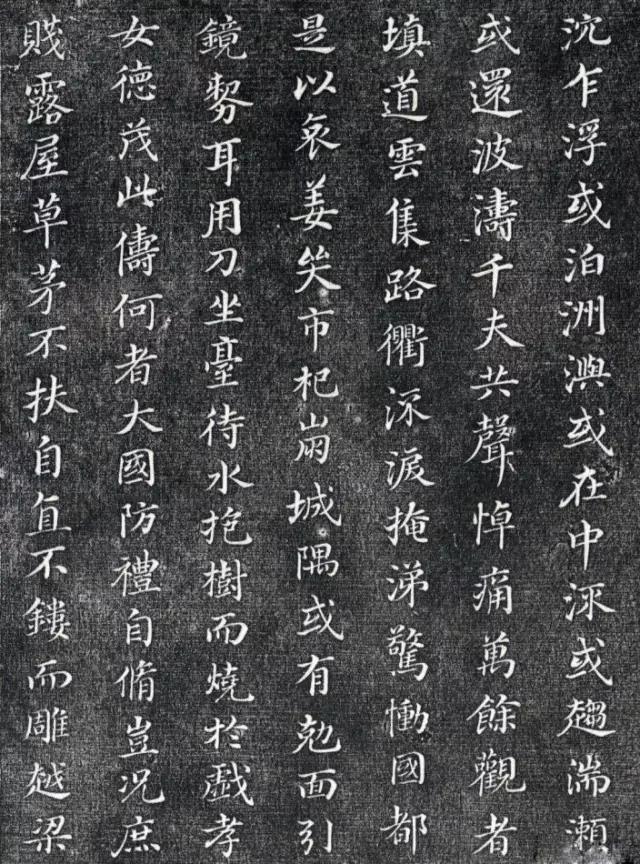 沉乍浮或泊洲嶼或在中流或趨湍瀬
或還波濤千夫共聲悼痛萬餘觀者
填道雲集路衢流淚掩涕驚慟國都
是以哀姜哭市杞崩城隅或有剋面引
鏡剺耳用刀坐臺待水抱樹而燒於戲孝
女德茂此儔何者大國防禮自脩豈況庶
賤露屋草茅不扶自直不鏤而雕越梁